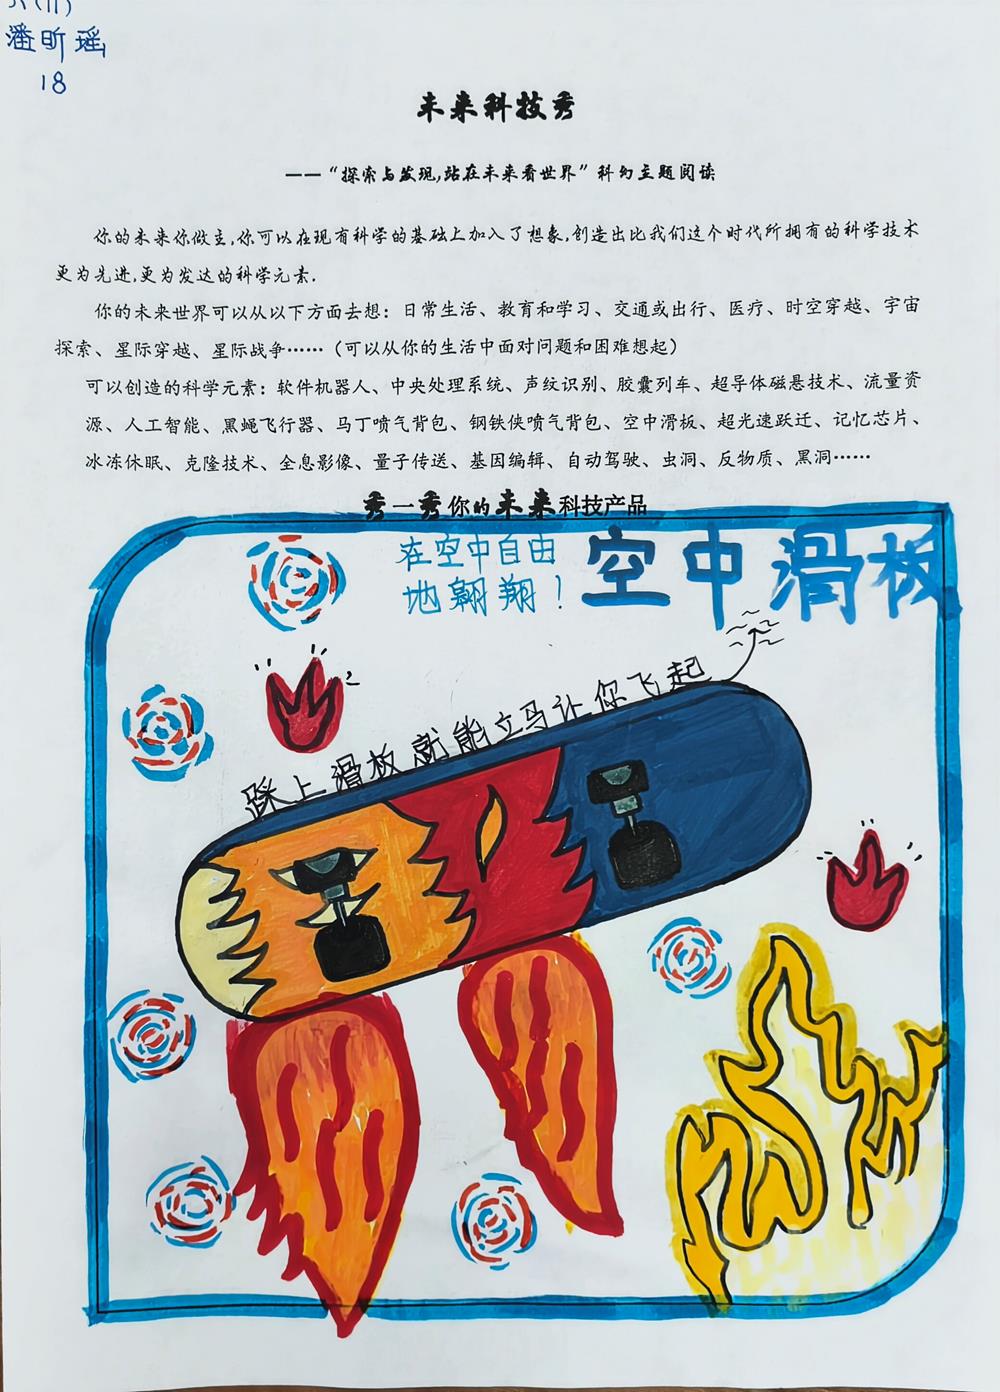 潘昕瑶
18
未来科技秀
——“探索与发现,站在未来看世界”科幻主题阅读
你的未来你做主,你可以在现有科学的基础上加入了想象,创造出比我们这个时代所拥有的科学技术
更为先进,更为发达的科学元素.
你的未来世界可以从以下方面去想：日常生活、教育和学习、交通或出行、医疗、时空穿越、宇宙
探索、星际穿越、星际战争……（可以从你的生活中面对问题和困难想起）
可以创造的科学元素：软件机器人、中央处理系统、声纹识别、胶囊列车、超导体磁悬技术、流量资
源、人工智能、黑蝇飞行器、马丁喷气背包、钢铁侠喷气背包、空中滑板、超光速跃迁、记忆芯片、
冰冻休眠、克隆技术、全息影像、量子传送、基因编辑、自动驾驶、虫洞、反物质、黑洞……
秀一秀你的未来科技产品
在空中自由
地翱翔！
空中滑板
踩上滑板就能立马让你飞起